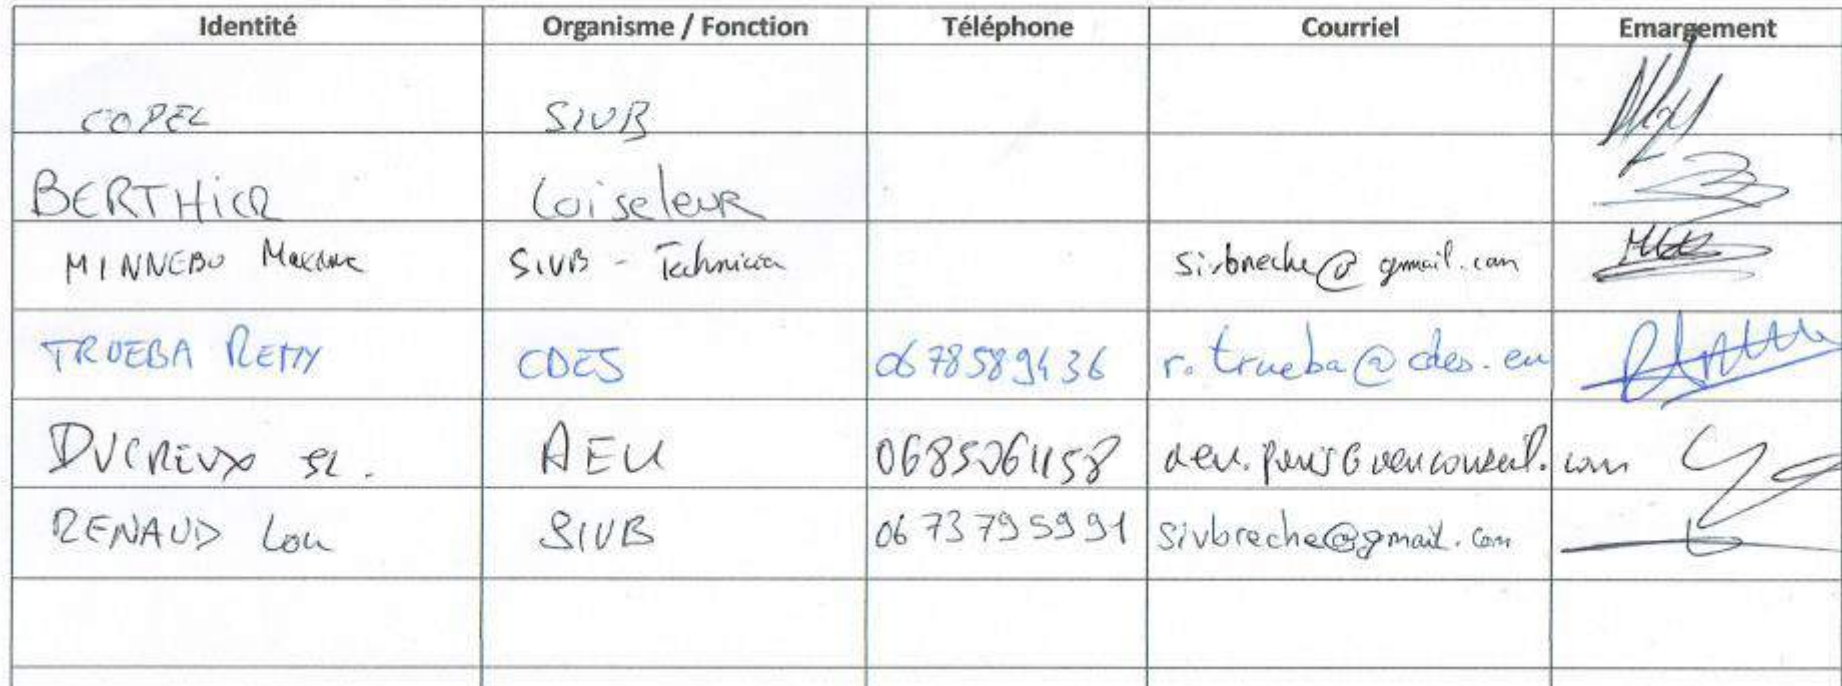 Identité Organisme / Fonction Téléphone Courriel Emargement
COPEL SIVB
BERTHIER Loiseleur
MINNEBO Maxime SIVB - Technicien sivbreche@gmail.com
TRUEBA REMY CDES 0678589436 r.trueba@cdes.eu
DUCREUX AEU 0685061158
RENAUD Lou SIVB 0673795991 sivbreche@gmail.com